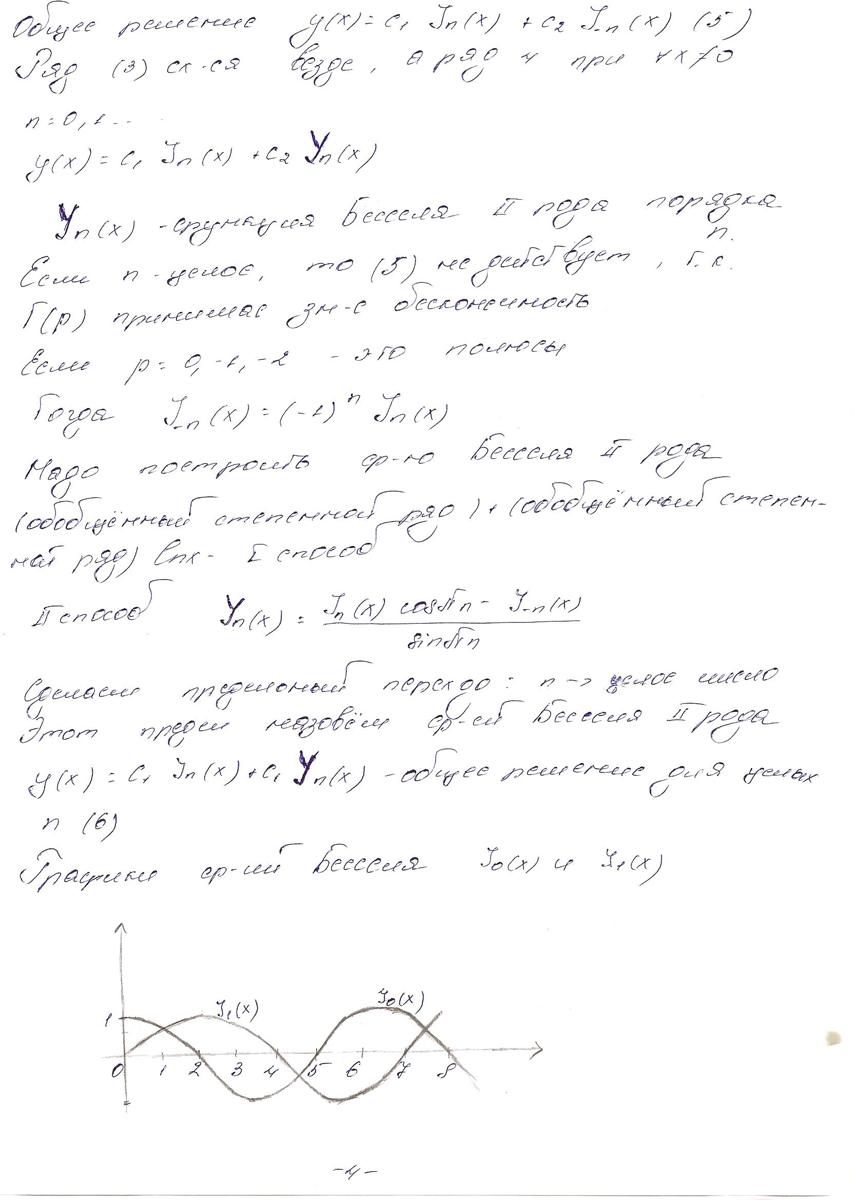 Общее решение y(x)=c₁ Jₙ(x) +c₂ J₋ₙ(x) (5)
Ряд (3) сх-ся везде, а ряд 4 при ∀x≠0
n=0,1...
y(x)=c₁ Jₙ(x) +c₂ Yₙ(x)
Yₙ(x) -функция Бесселя II рода порядка
n.
Если n-целое, то (5) не действует, т.к.
Г(p) принимает зн-е бесконечность
Если p=0,-1,-2 - это полюсы
Тогда J₋ₙ(x)=(-1)ⁿ Jₙ(x)
Надо построить ф-ю Бесселя II рода
(обобщённый степенной ряд)+(обобщённый степен-
ной ряд) lnx- I способ
II способ Yₙ(x) = (Jₙ(x) cosπn - J₋ₙ(x)) / sinπn
Сделаем предельный переход: n -> целое число
Этот предел назовём ф-ей Бесселя II рода
y(x)=c₁ Jₙ(x)+c₁ Yₙ(x) -общее решение для целых
n (6)
Графики ф-ий Бесселя J₀(x) и J₁(x)
J₁(x) J₀(x)
1
0 1 2 3 4 5 6 7 8
-4-